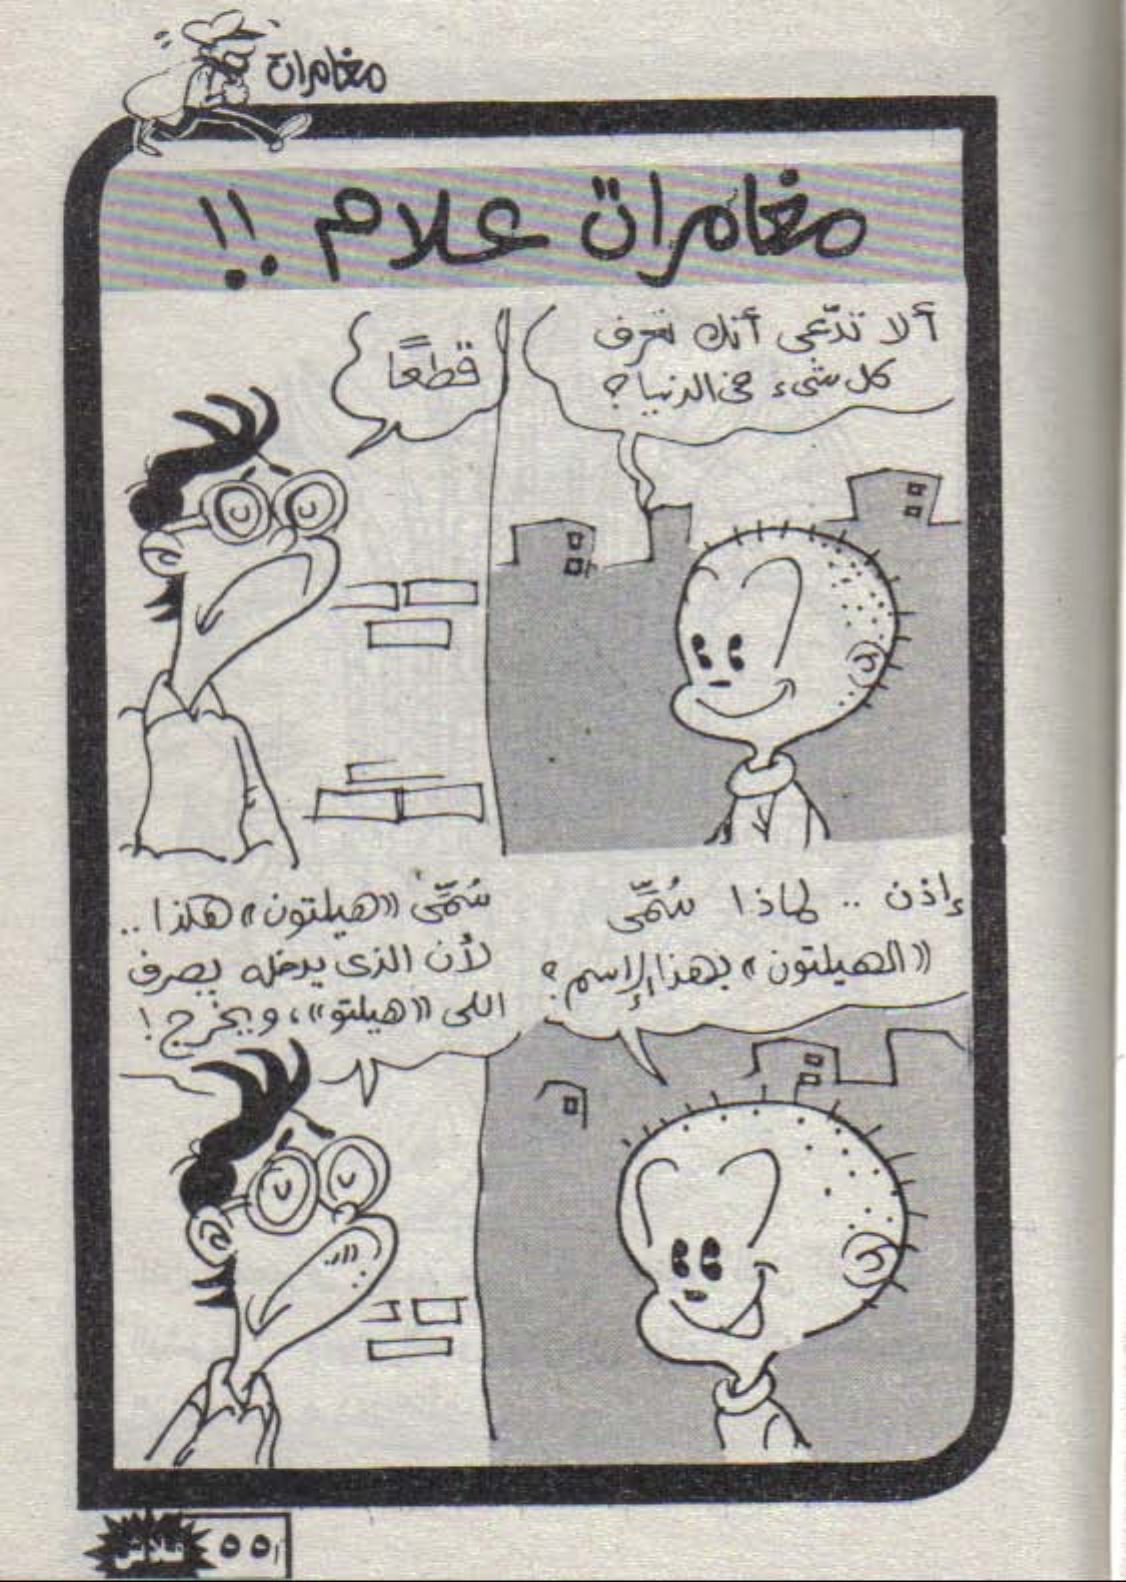 مغامرات
مغامرات علام !!
ألا تدّعى أنك تعرف
كل شىء فى الدنيا؟
قطعًا
إذن .. لماذا سُمِّى
«الهيلتون» بهذا الإسم؟
سُمِّى «هيلتون» هكذا..
لأن الذى يدخله يصرف
اللى «هيلتو»، ويخرج!
٥٥
فلاش